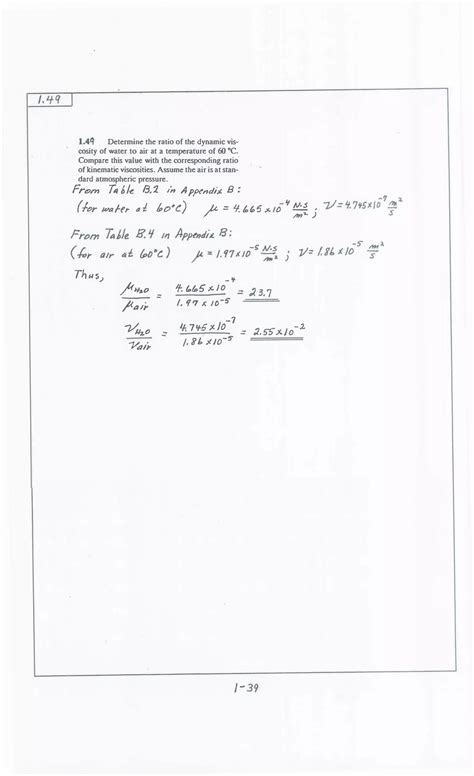 1.49
1.49 Determine the ratio of the dynamic vis-
cosity of water to air at a temperature of 60 °C.
Compare this value with the corresponding ratio
of kinematic viscosities. Assume the air is at stan-
dard atmospheric pressure.
From Table B.2 in Appendix B:
(for water at 60°C) μ = 4.665 x 10⁻⁴ N·s/m² ; ν = 4.745x10⁻⁷ m²/s
From Table B.4 in Appendix B:
(for air at 60°C) μ = 1.97x10⁻⁵ N·s/m² ; ν = 1.86 x 10⁻⁵ m²/s
Thus,
μH₂O/μair = 4.665 x 10⁻⁴/1.97 x 10⁻⁵ = 23.7
νH₂O/νair = 4.745 x 10⁻⁷/1.86 x 10⁻⁵ = 2.55 x 10⁻²
1-39